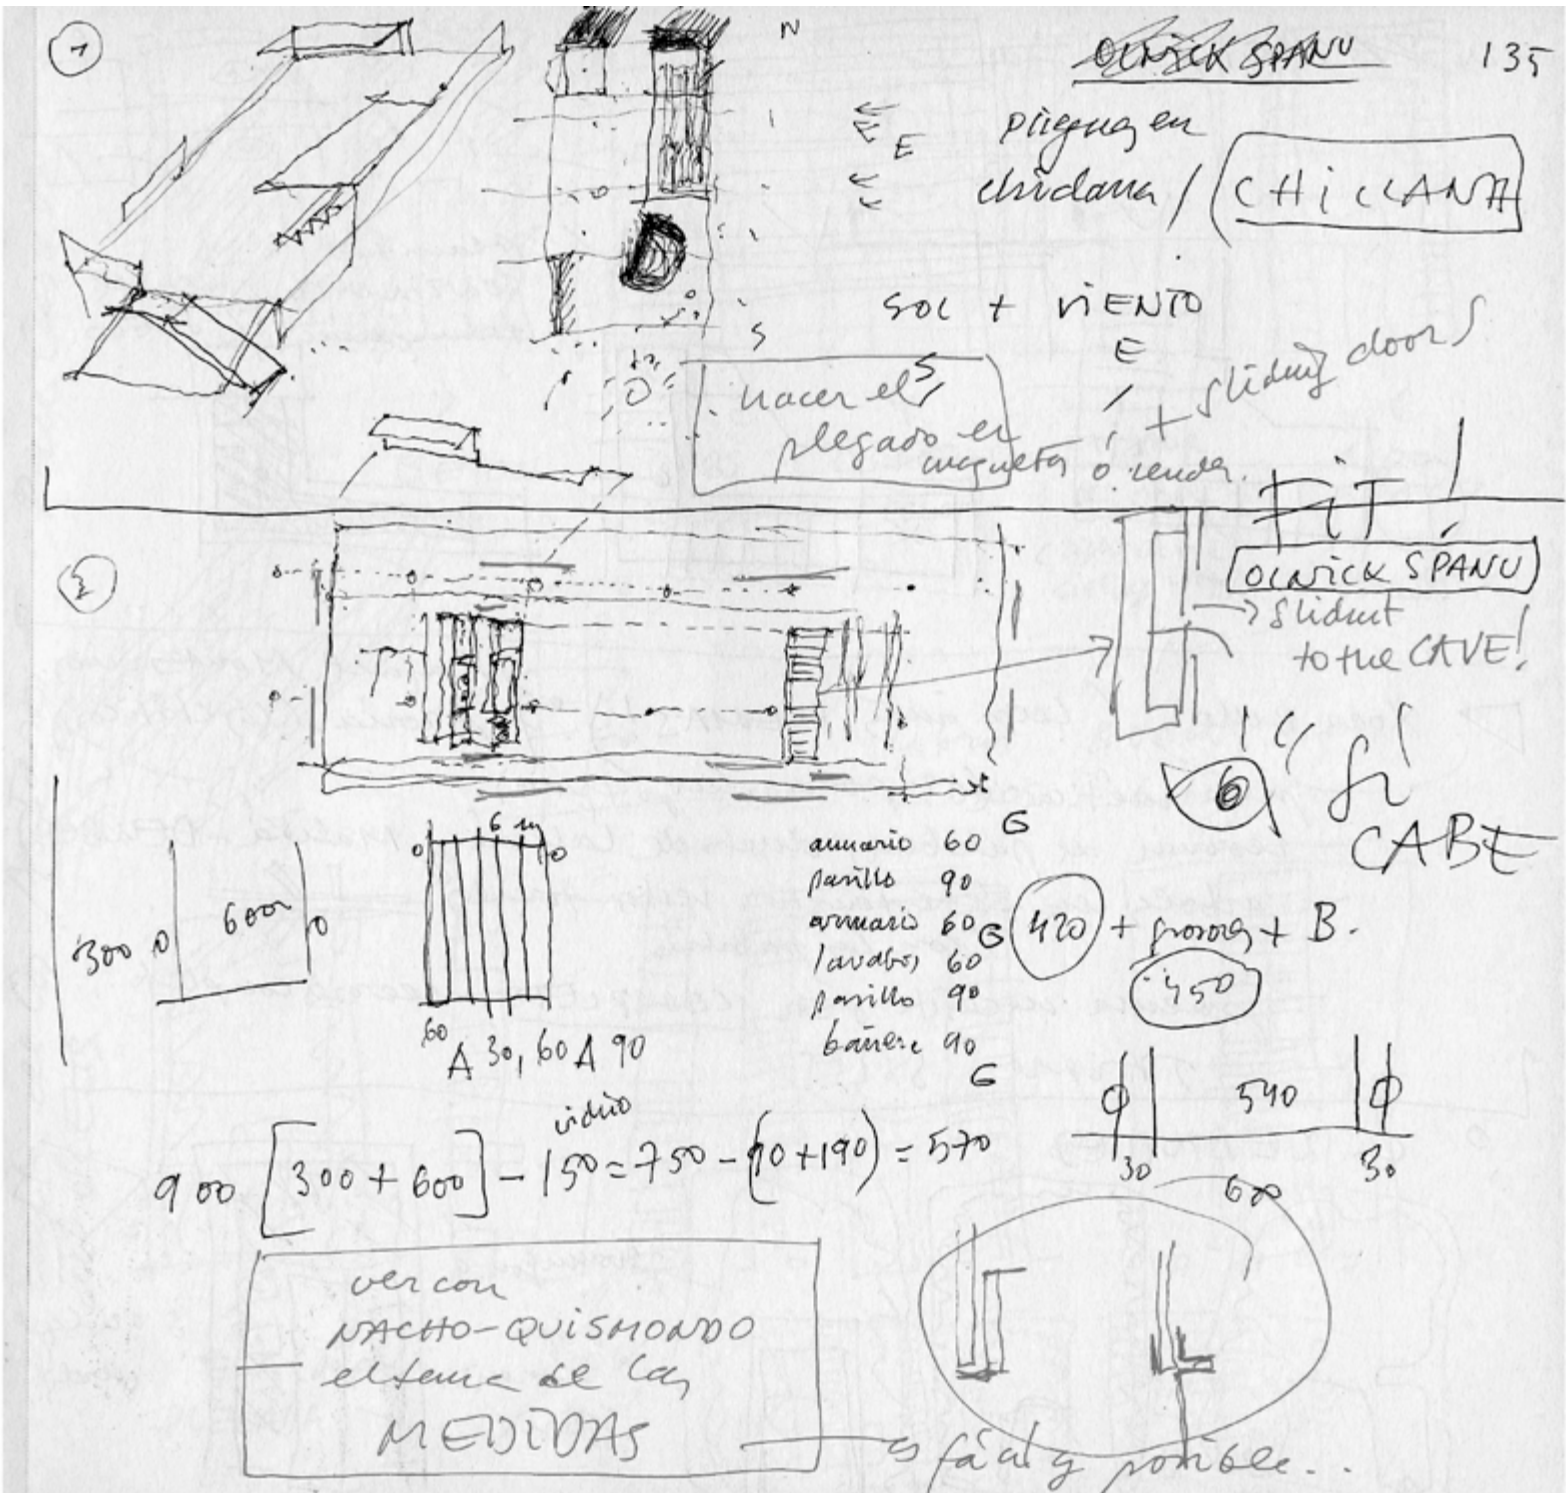 1
N
OLNICK SPANU
135
E
en
/ CHICLANA
SOL + VIENTO
E
S
hacer el
plegado en
maqueta ó render.
+ sliding doors
FIT
2
OLNICK SPANU
→ slidint
to the CAVE!
SÍ
CABE
300
600
6 m
60 A 30, 60 A 90
armario 60
pasillo 90
armario 60
lavabos 60
pasillo 90
bañera 90
G
G
G
420 + grosores + B.
450
540
30
30
600
vidrio
900 [300 + 600] - 150 = 750 - (90 + 190) = 570
ver con
NACHO-QUISMONDO
el tema de las
MEDIDAS
es fácil y posible..